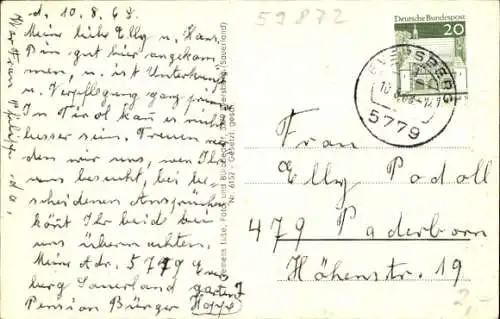 d. 10.8.68.
Meine liebe Elly u. Hans.
Bin gut hier angekom
men, u. ist Unterkunft
u. Verpflegung ganz prima
In Tirol kann es nicht
besser sein. Freuen
den wir uns, wenn Ihr
uns besucht, bei be-
scheidenen Ansprüchen
könnt Ihr beide bei
uns übernachten.
Meine Adr. 5779 Evers
berg Sauerland
Pension Bürger Hoppe
War Frau
da,
59872
Deutsche Bundespost
20
EVERSBERG
5779
Nr. 6152 - Gesetzl. gesch.
Frau
Elly Podoll
479 Paderborn
Höhenstr. 19
2,-